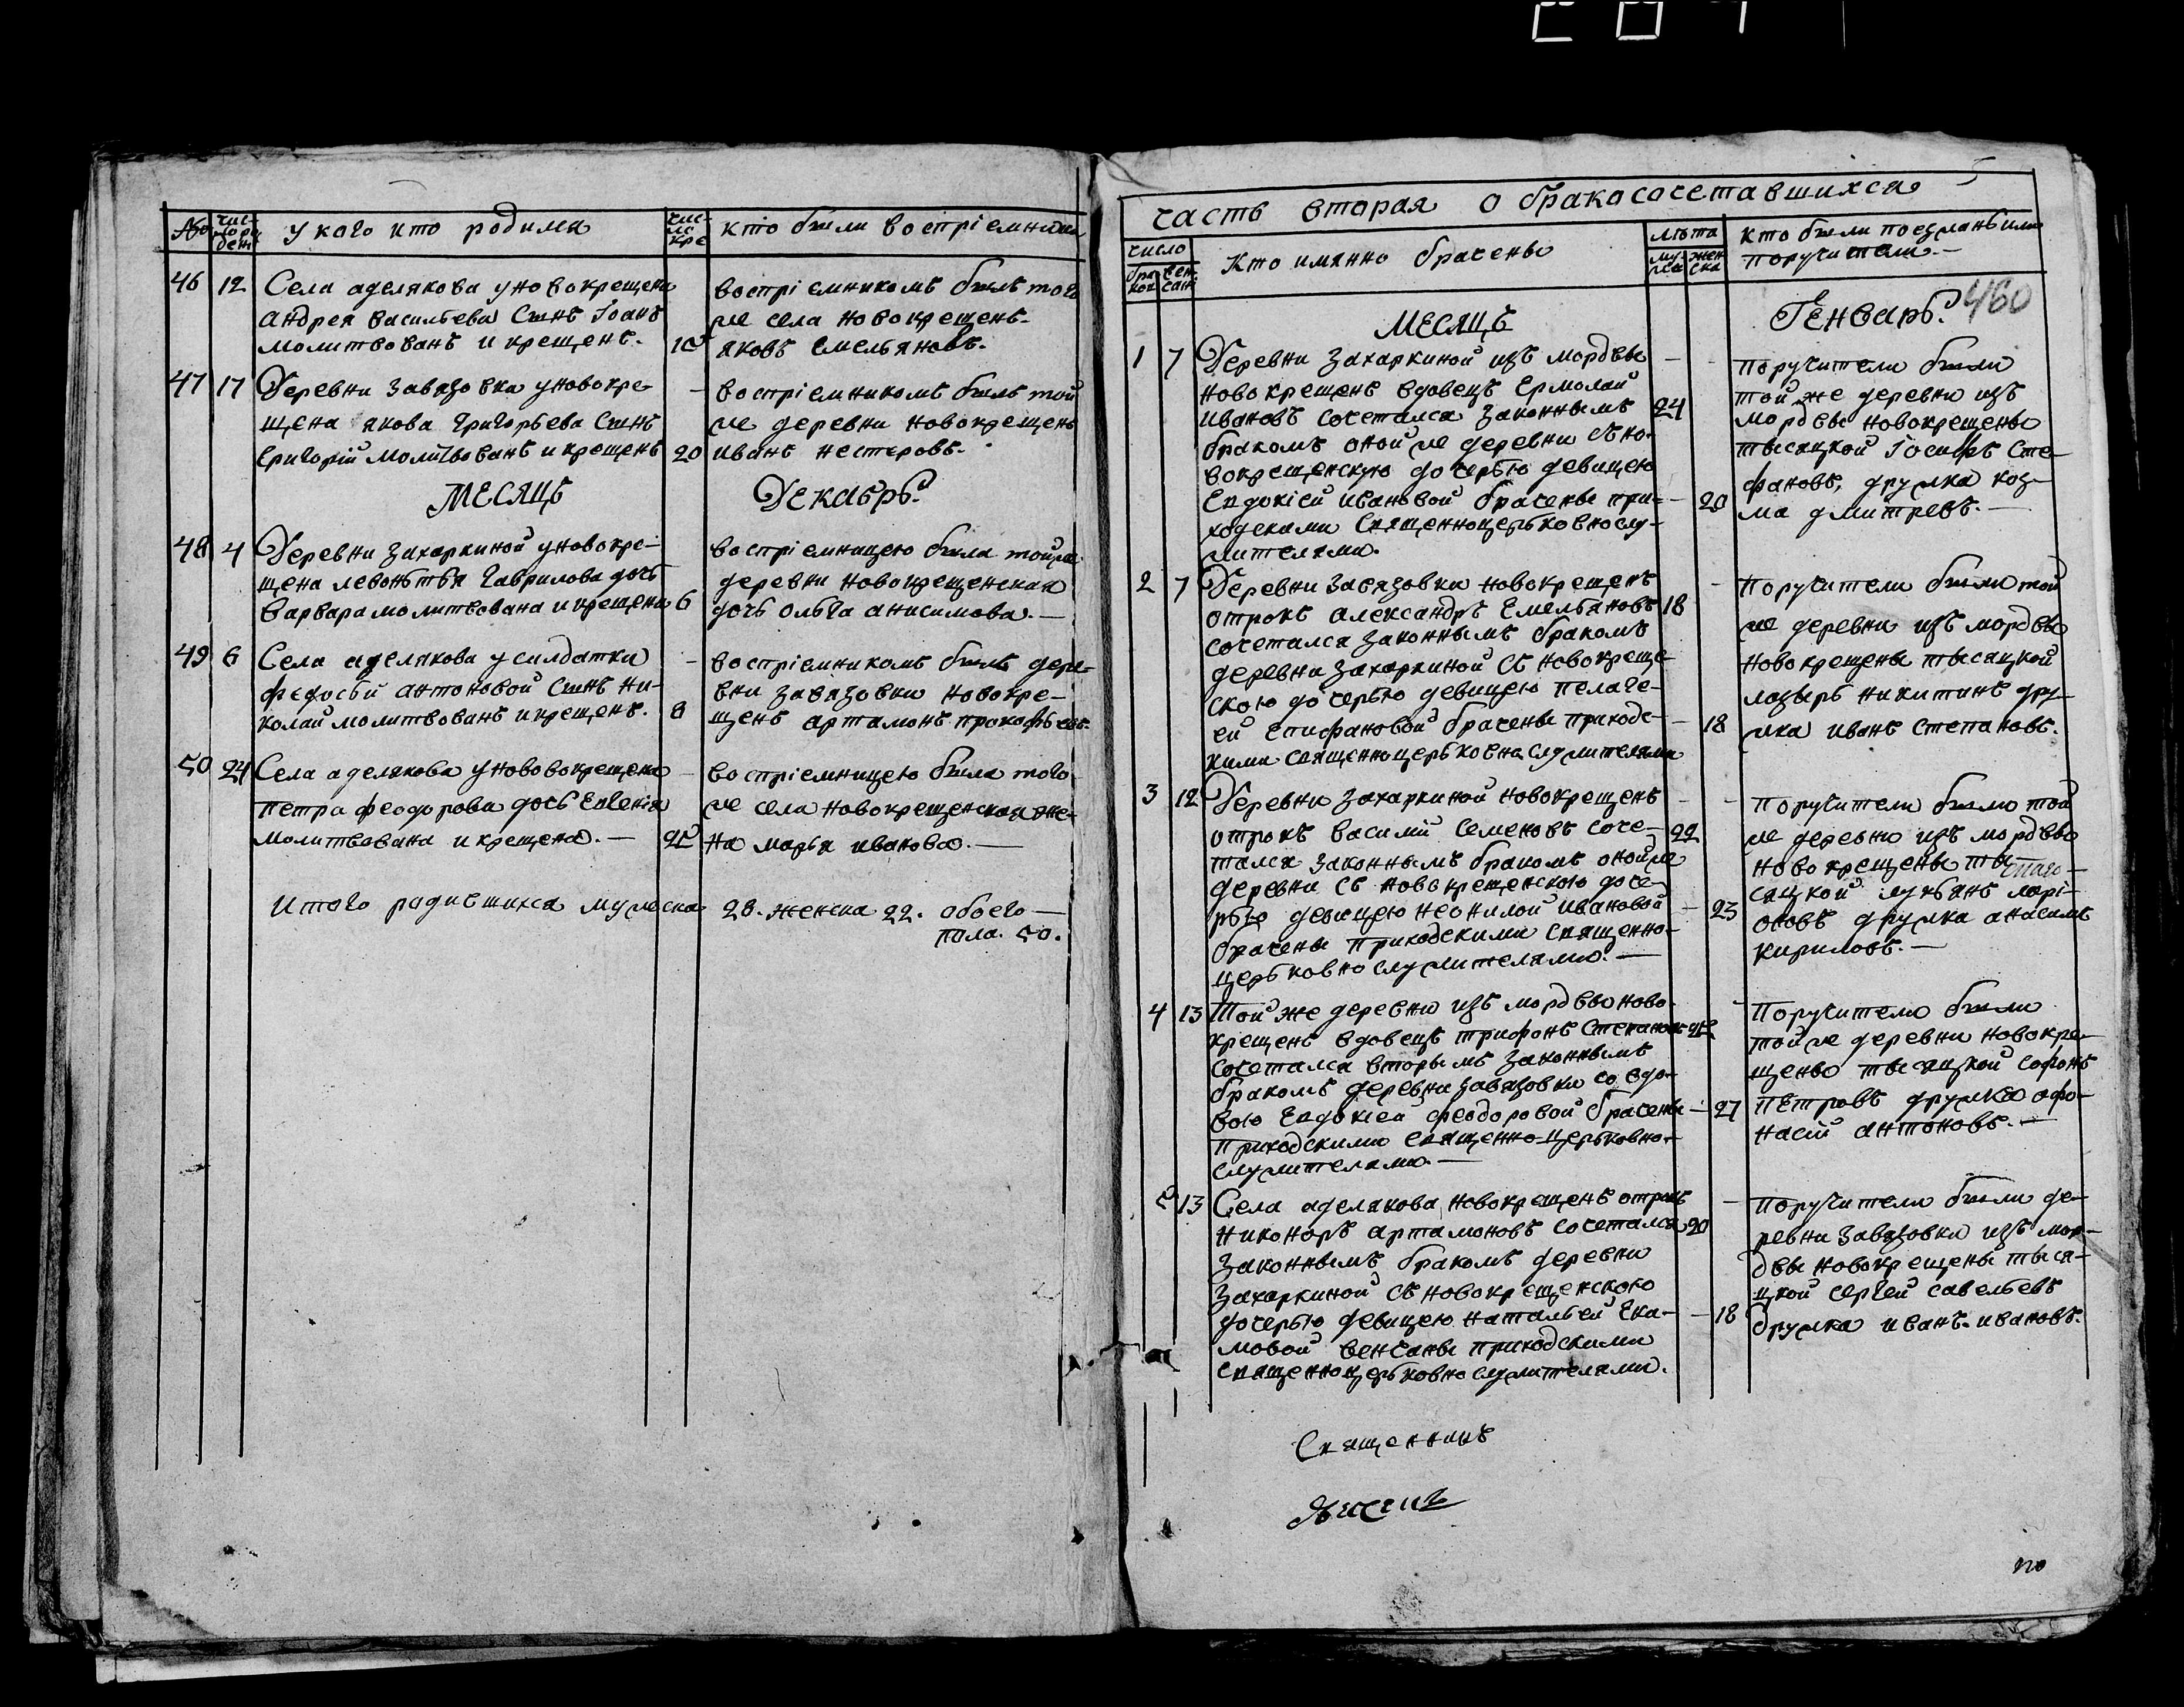 №
чис-
ло ро
ден
у кого кто родился
чис-
ло
кре
кто были воспріемники
46 12 Села аделякова у новокрещена
андрея васильева Сынъ Іоанъ
молитвованъ и крещенъ. 15
воспріемникомъ былъ того
же села новокрещенъ
яковъ емельяновъ.
47 17 Деревни завязовка у новокре-
щена якова григорьева Сынъ
Григорій молитвованъ и крещенъ 20
воспріемникомъ былъ той
же деревни новокрещенъ
иванъ нестеровъ.
МЕСЯЦЪ Декабрь.
48 4 Деревни захаркиной у новокре-
щена левонтья гаврилова дочь
варвара молитвована и крещена 6
воспріемницею была той же
деревни новокрещенская
дочь ольга анисимова.
49 6 Села аделякова у салдатки
федосьи антоновой Сынъ ни-
колай молитвованъ и крещенъ. 8
воспріемникомъ былъ дере-
вни завязовки новокре-
щенъ артамонъ прокофьевъ.
50 24 Села аделякова у нововокрещена
петра феодорова дочь Евгенія
молитвована и крещена. 25
воспріемницею была того
же села новокрещенская же-
на марья иванова.
Итого родившихся мужеска 28. женска 22. обоего
пола. 50.
часть вторая о бракосочетавшихся
число
бра
ков
вен
чан
Кто имянно брачены
лѣта
му-
жес
жен
ска
кто были поезжаныили
поручители.
МЕСЯЦЪ Генварь. 460
1 7 Деревни захаркиной изъ мордвы
новокрещенъ вдовецъ Ермолай
ивановъ сочетался законнымъ 24
бракомъ оной же деревни съ но-
вокрещенскую дочерью девицею
Евдокіей ивановой брачены при- 20
ходскими Священноцерьковнослу-
жителями.
поручители были
той же деревни изъ
мордвы новокрещены
тысяцкой Іосифъ Сте-
фановъ, дружка коз-
ма дмитревъ.
2 7 Деревни завязовки новокрещенъ
отрокъ александръ Емельяновъ 18
сочетался законнымъ бракомъ
деревни захаркиной съ новокреще-
скою дочерью девицею пелаге-
ей Епифановой брачены приходс- 18
кими священноцерьковнослужителями
поручители были той
же деревни изъ мордвы
новокрещены тысяцкой
лазырь никитинъ дру-
жка иванъ степановъ.
3 12 Деревни захаркиной новокрещенъ
отрокъ василій семеновъ соче- 22
тался законнымъ бракомъ оной же
деревни съ новокрещенскою доче-
рью девицею неонилой ивановой 23
брачены приходскими священно-
церьковнослужителями.
поручители были той
же деревни изъ мордвы
новокрещены ты
сяцкой лукьянъ ларі-
оновъ дружка анасимъ
кириловъ.
4 13 Той же деревни изъ мордвы ново-
крещенъ вдовецъ трифонъ Степановъ 25
сочетался вторымъ законнымъ
бракомъ деревни завязовки со вдо-
вою Евдокіей феодоровой брачены 27
приходскими священно-церьковно-
служителами.
поручители были
той же деревни новокре-
щены тысяцкой софонъ
петровъ дружка афо-
насій антоновъ.
5 13 Села аделякова новокрещенъ отрокъ
никоноръ артамоновъ сочетался 20
законнымъ бракомъ деревни
захаркиной съ новокрещенскою
дочерью девицею натальей Ека- 18
мовой венчаны приходскими
священноцерьковнослужителями.
поручители были де-
ревни завязовки изъ мор-
двы новокрещены тыся-
цкой сергей савельевъ
дружка иванъ ивановъ.
Священникъ
по